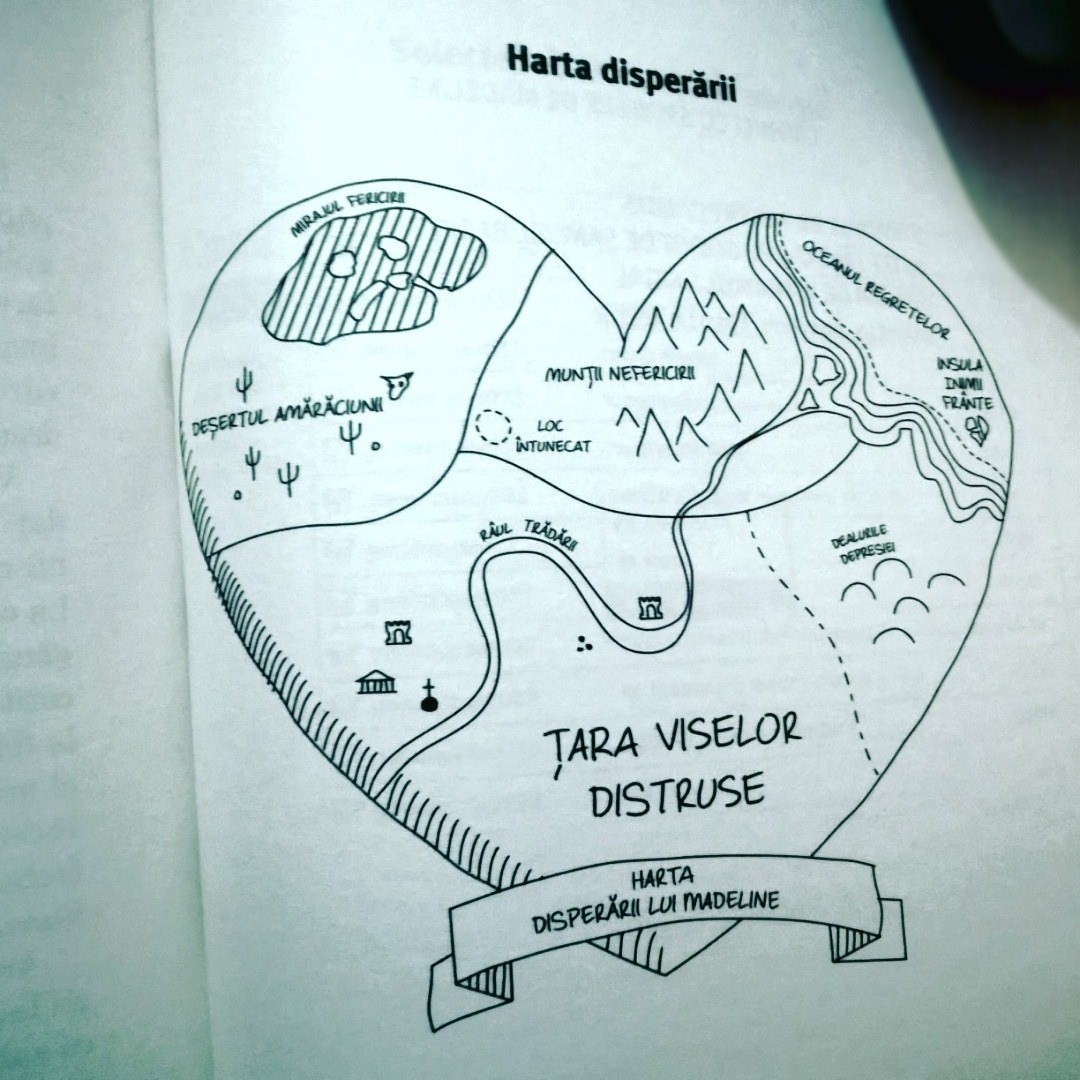 Harta disperării
MIRAJUL FERICIRII
OCEANUL REGRETELOR
INSULA
INIMII
FRÂNTE
MUNȚII NEFERICIRII
DEȘERTUL AMĂRĂCIUNII
LOC
ÎNTUNECAT
RÂUL TRĂDĂRII
DEALURILE
DEPRESIEI
ȚARA VISELOR
DISTRUSE
HARTA
DISPERĂRII LUI MADELINE